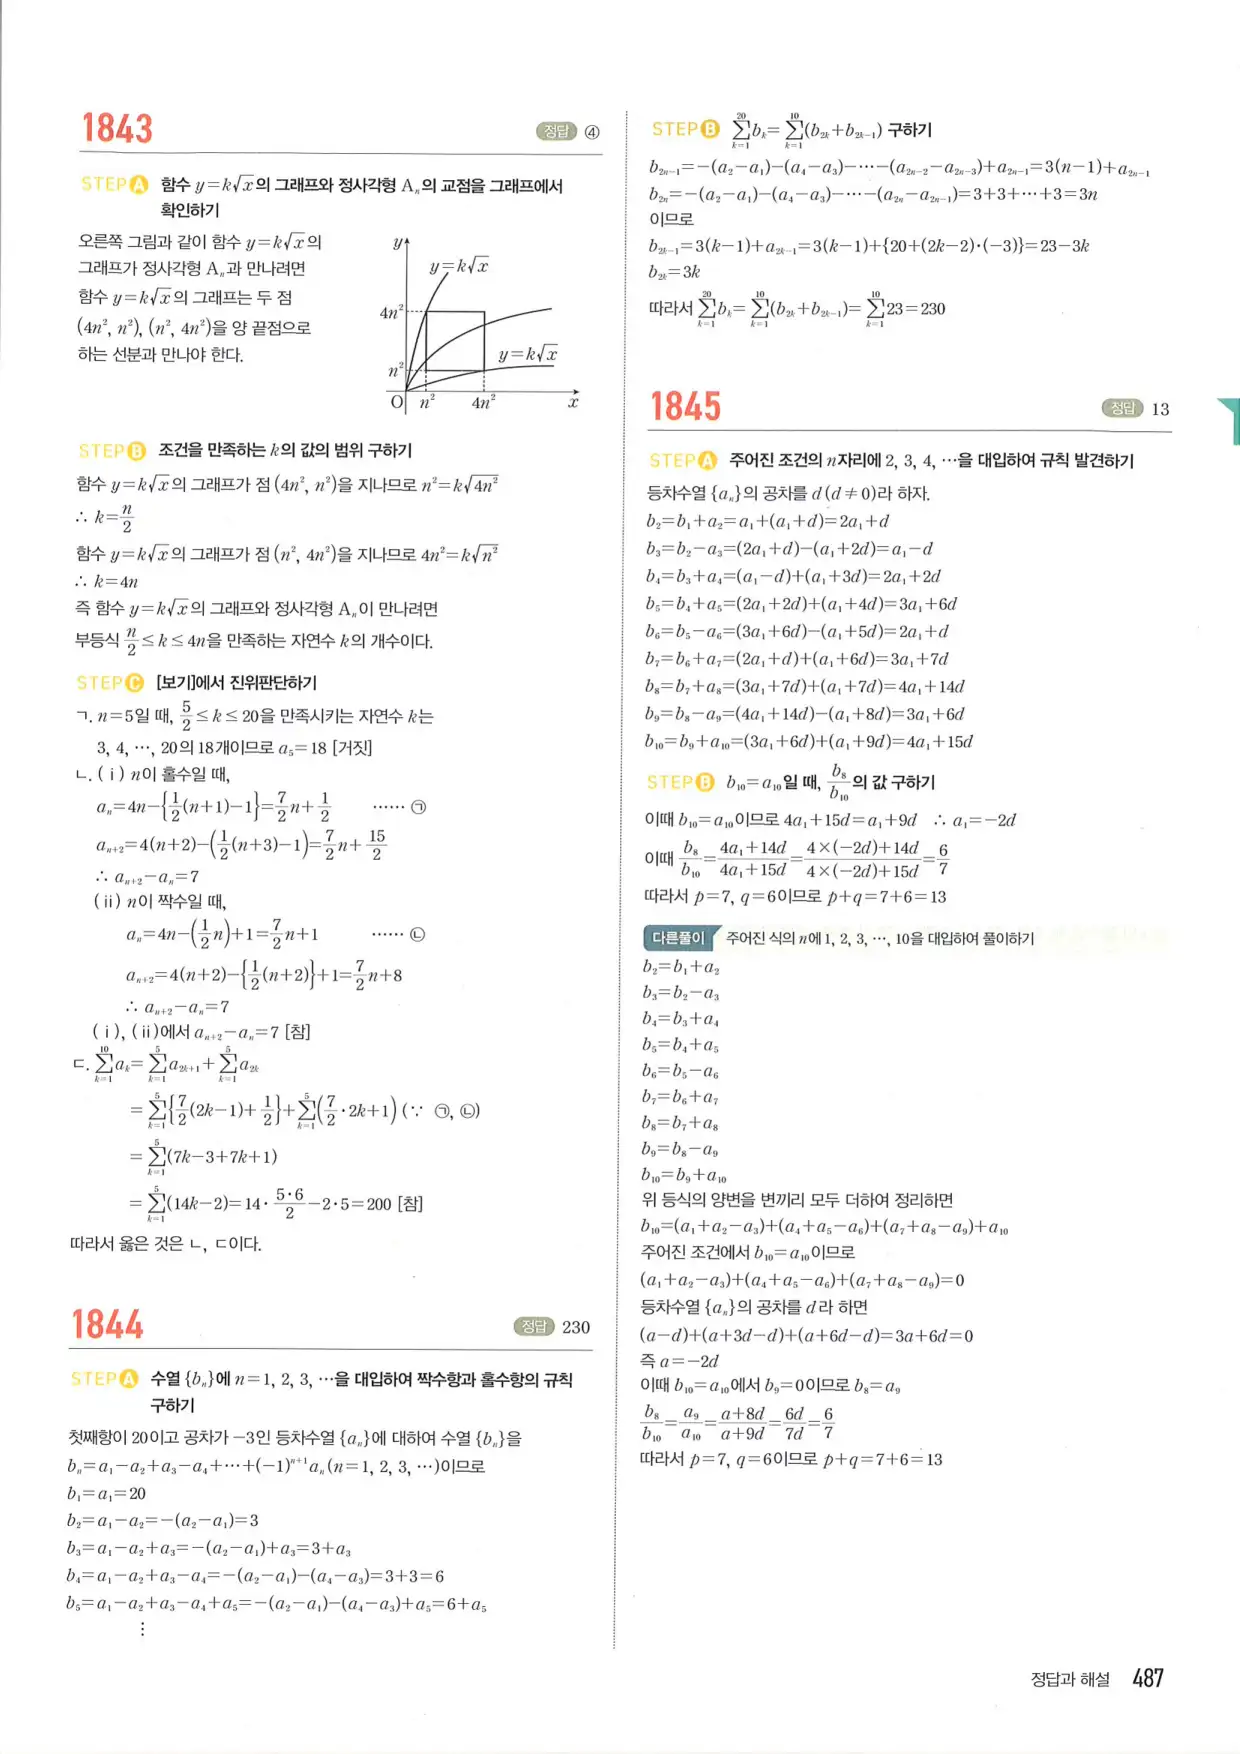 1843
정답 ④
STEP A 함수 y=k√x의 그래프와 정사각형 Aₙ의 교점을 그래프에서
확인하기
오른쪽 그림과 같이 함수 y=k√x의
그래프가 정사각형 Aₙ과 만나려면
함수 y=k√x의 그래프는 두 점
(4n², n²), (n², 4n²)을 양 끝점으로
하는 선분과 만나야 한다.
y
y=k√x
4n²
y=k√x
n²
O n² 4n² x
STEP B 조건을 만족하는 k의 값의 범위 구하기
함수 y=k√x의 그래프가 점 (4n², n²)을 지나므로 n²=k√4n²
∴ k=n/2
함수 y=k√x의 그래프가 점 (n², 4n²)을 지나므로 4n²=k√n²
∴ k=4n
즉 함수 y=k√x의 그래프와 정사각형 Aₙ이 만나려면
부등식 n/2≤k≤4n을 만족하는 자연수 k의 개수이다.
STEP C [보기]에서 진위판단하기
ㄱ. n=5일 때, 5/2≤k≤20을 만족시키는 자연수 k는
3, 4, ⋯, 20의 18개이므로 a₅=18 [거짓]
ㄴ. (ⅰ) n이 홀수일 때,
aₙ=4n−{1/2(n+1)−1}=7/2n+1/2 ⋯⋯ ㉠
aₙ₊₂=4(n+2)−(1/2(n+3)−1)=7/2n+15/2
∴ aₙ₊₂−aₙ=7
(ⅱ) n이 짝수일 때,
aₙ=4n−(1/2n)+1=7/2n+1 ⋯⋯ ㉡
aₙ₊₂=4(n+2)−{1/2(n+2)}+1=7/2n+8
∴ aₙ₊₂−aₙ=7
(ⅰ), (ⅱ)에서 aₙ₊₂−aₙ=7 [참]
ㄷ. ∑_{k=1}^{10} a_k=∑_{k=1}^{5} a_{2k+1}+∑_{k=1}^{5} a_{2k}
=∑_{k=1}^{5}{7/2(2k−1)+1/2}+∑_{k=1}^{5}(7/2·2k+1) (∵ ㉠, ㉡)
=∑_{k=1}^{5}(7k−3+7k+1)
=∑_{k=1}^{5}(14k−2)=14·5·6/2−2·5=200 [참]
따라서 옳은 것은 ㄴ, ㄷ이다.
1844
정답 230
STEP A 수열 {bₙ}에 n=1, 2, 3, ⋯을 대입하여 짝수항과 홀수항의 규칙
구하기
첫째항이 20이고 공차가 −3인 등차수열 {aₙ}에 대하여 수열 {bₙ}을
bₙ=a₁−a₂+a₃−a₄+⋯+(−1)ⁿ⁺¹aₙ(n=1, 2, 3, ⋯)이므로
b₁=a₁=20
b₂=a₁−a₂=−(a₂−a₁)=3
b₃=a₁−a₂+a₃=−(a₂−a₁)+a₃=3+a₃
b₄=a₁−a₂+a₃−a₄=−(a₂−a₁)−(a₄−a₃)=3+3=6
b₅=a₁−a₂+a₃−a₄+a₅=−(a₂−a₁)−(a₄−a₃)+a₅=6+a₅
⋮
STEP B ∑_{k=1}^{20} b_k=∑_{k=1}^{10}(b_{2k}+b_{2k−1}) 구하기
b_{2n−1}=−(a₂−a₁)−(a₄−a₃)−⋯−(a_{2n−2}−a_{2n−3})+a_{2n−1}=3(n−1)+a_{2n−1}
b_{2n}=−(a₂−a₁)−(a₄−a₃)−⋯−(a_{2n}−a_{2n−1})=3+3+⋯+3=3n
이므로
b_{2k−1}=3(k−1)+a_{2k−1}=3(k−1)+{20+(2k−2)·(−3)}=23−3k
b_{2k}=3k
따라서 ∑_{k=1}^{20} b_k=∑_{k=1}^{10}(b_{2k}+b_{2k−1})=∑_{k=1}^{10}23=230
1845
정답 13
STEP A 주어진 조건의 n자리에 2, 3, 4, ⋯을 대입하여 규칙 발견하기
등차수열 {aₙ}의 공차를 d(d≠0)라 하자.
b₂=b₁+a₂=a₁+(a₁+d)=2a₁+d
b₃=b₂−a₃=(2a₁+d)−(a₁+2d)=a₁−d
b₄=b₃+a₄=(a₁−d)+(a₁+3d)=2a₁+2d
b₅=b₄+a₅=(2a₁+2d)+(a₁+4d)=3a₁+6d
b₆=b₅−a₆=(3a₁+6d)−(a₁+5d)=2a₁+d
b₇=b₆+a₇=(2a₁+d)+(a₁+6d)=3a₁+7d
b₈=b₇+a₈=(3a₁+7d)+(a₁+7d)=4a₁+14d
b₉=b₈−a₉=(4a₁+14d)−(a₁+8d)=3a₁+6d
b₁₀=b₉+a₁₀=(3a₁+6d)+(a₁+9d)=4a₁+15d
STEP B b₁₀=a₁₀일 때, b₈/b₁₀의 값 구하기
이때 b₁₀=a₁₀이므로 4a₁+15d=a₁+9d ∴ a₁=−2d
이때 b₈/b₁₀=(4a₁+14d)/(4a₁+15d)=(4×(−2d)+14d)/(4×(−2d)+15d)=6/7
따라서 p=7, q=6이므로 p+q=7+6=13
다른풀이 주어진 식의 n에 1, 2, 3, ⋯, 10을 대입하여 풀이하기
b₂=b₁+a₂
b₃=b₂−a₃
b₄=b₃+a₄
b₅=b₄+a₅
b₆=b₅−a₆
b₇=b₆+a₇
b₈=b₇+a₈
b₉=b₈−a₉
b₁₀=b₉+a₁₀
위 등식의 양변을 변끼리 모두 더하여 정리하면
b₁₀=(a₁+a₂−a₃)+(a₄+a₅−a₆)+(a₇+a₈−a₉)+a₁₀
주어진 조건에서 b₁₀=a₁₀이므로
(a₁+a₂−a₃)+(a₄+a₅−a₆)+(a₇+a₈−a₉)=0
등차수열 {aₙ}의 공차를 d라 하면
(a−d)+(a+3d−d)+(a+6d−d)=3a+6d=0
즉 a=−2d
이때 b₁₀=a₁₀에서 b₉=0이므로 b₈=a₉
b₈/b₁₀=a₉/a₁₀=(a+8d)/(a+9d)=6d/7d=6/7
따라서 p=7, q=6이므로 p+q=7+6=13
정답과 해설 487